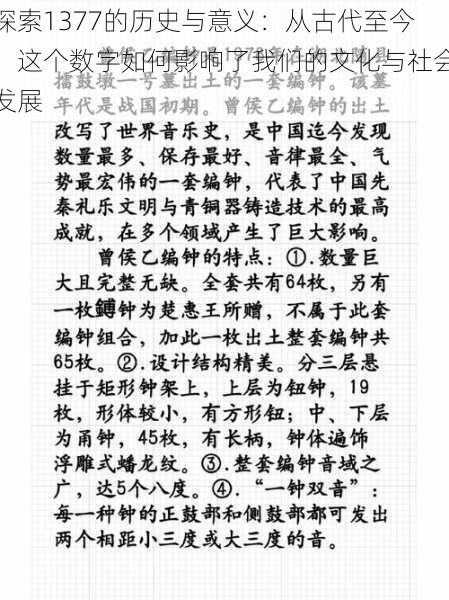 探索1377的历史与意义：从古代至今
，这个数字如何影响了我们的文化与社会
发展
擂鼓墩一号墓出土的一套编钟。该墓
年代是战国初期。曾侯乙编钟的出土
改写了世界音乐史，是中国迄今发现
数量最多、保存最好、音律最全、气
势最宏伟的一套编钟，代表了中国先
秦礼乐文明与青铜器铸造技术的最高
成就，在多个领域产生了巨大影响。
曾侯乙编钟的特点：①.数量巨
大且完整无缺。全套共有64枚，另有
一枚鎛钟为楚惠王所赠，不属于此套
编钟组合，加此一枚出土整套编钟共
65枚。②.设计结构精美。分三层悬
挂于矩形钟架上，上层为钮钟，19
枚，形体较小，有方形钮；中、下层
为甬钟，45枚，有长柄，钟体遍饰
浮雕式蟠龙纹。③.整套编钟音域之
广，达5个八度。④.“一钟双音”：
每一种钟的正鼓部和侧鼓部都可发出
两个相距小三度或大三度的音。